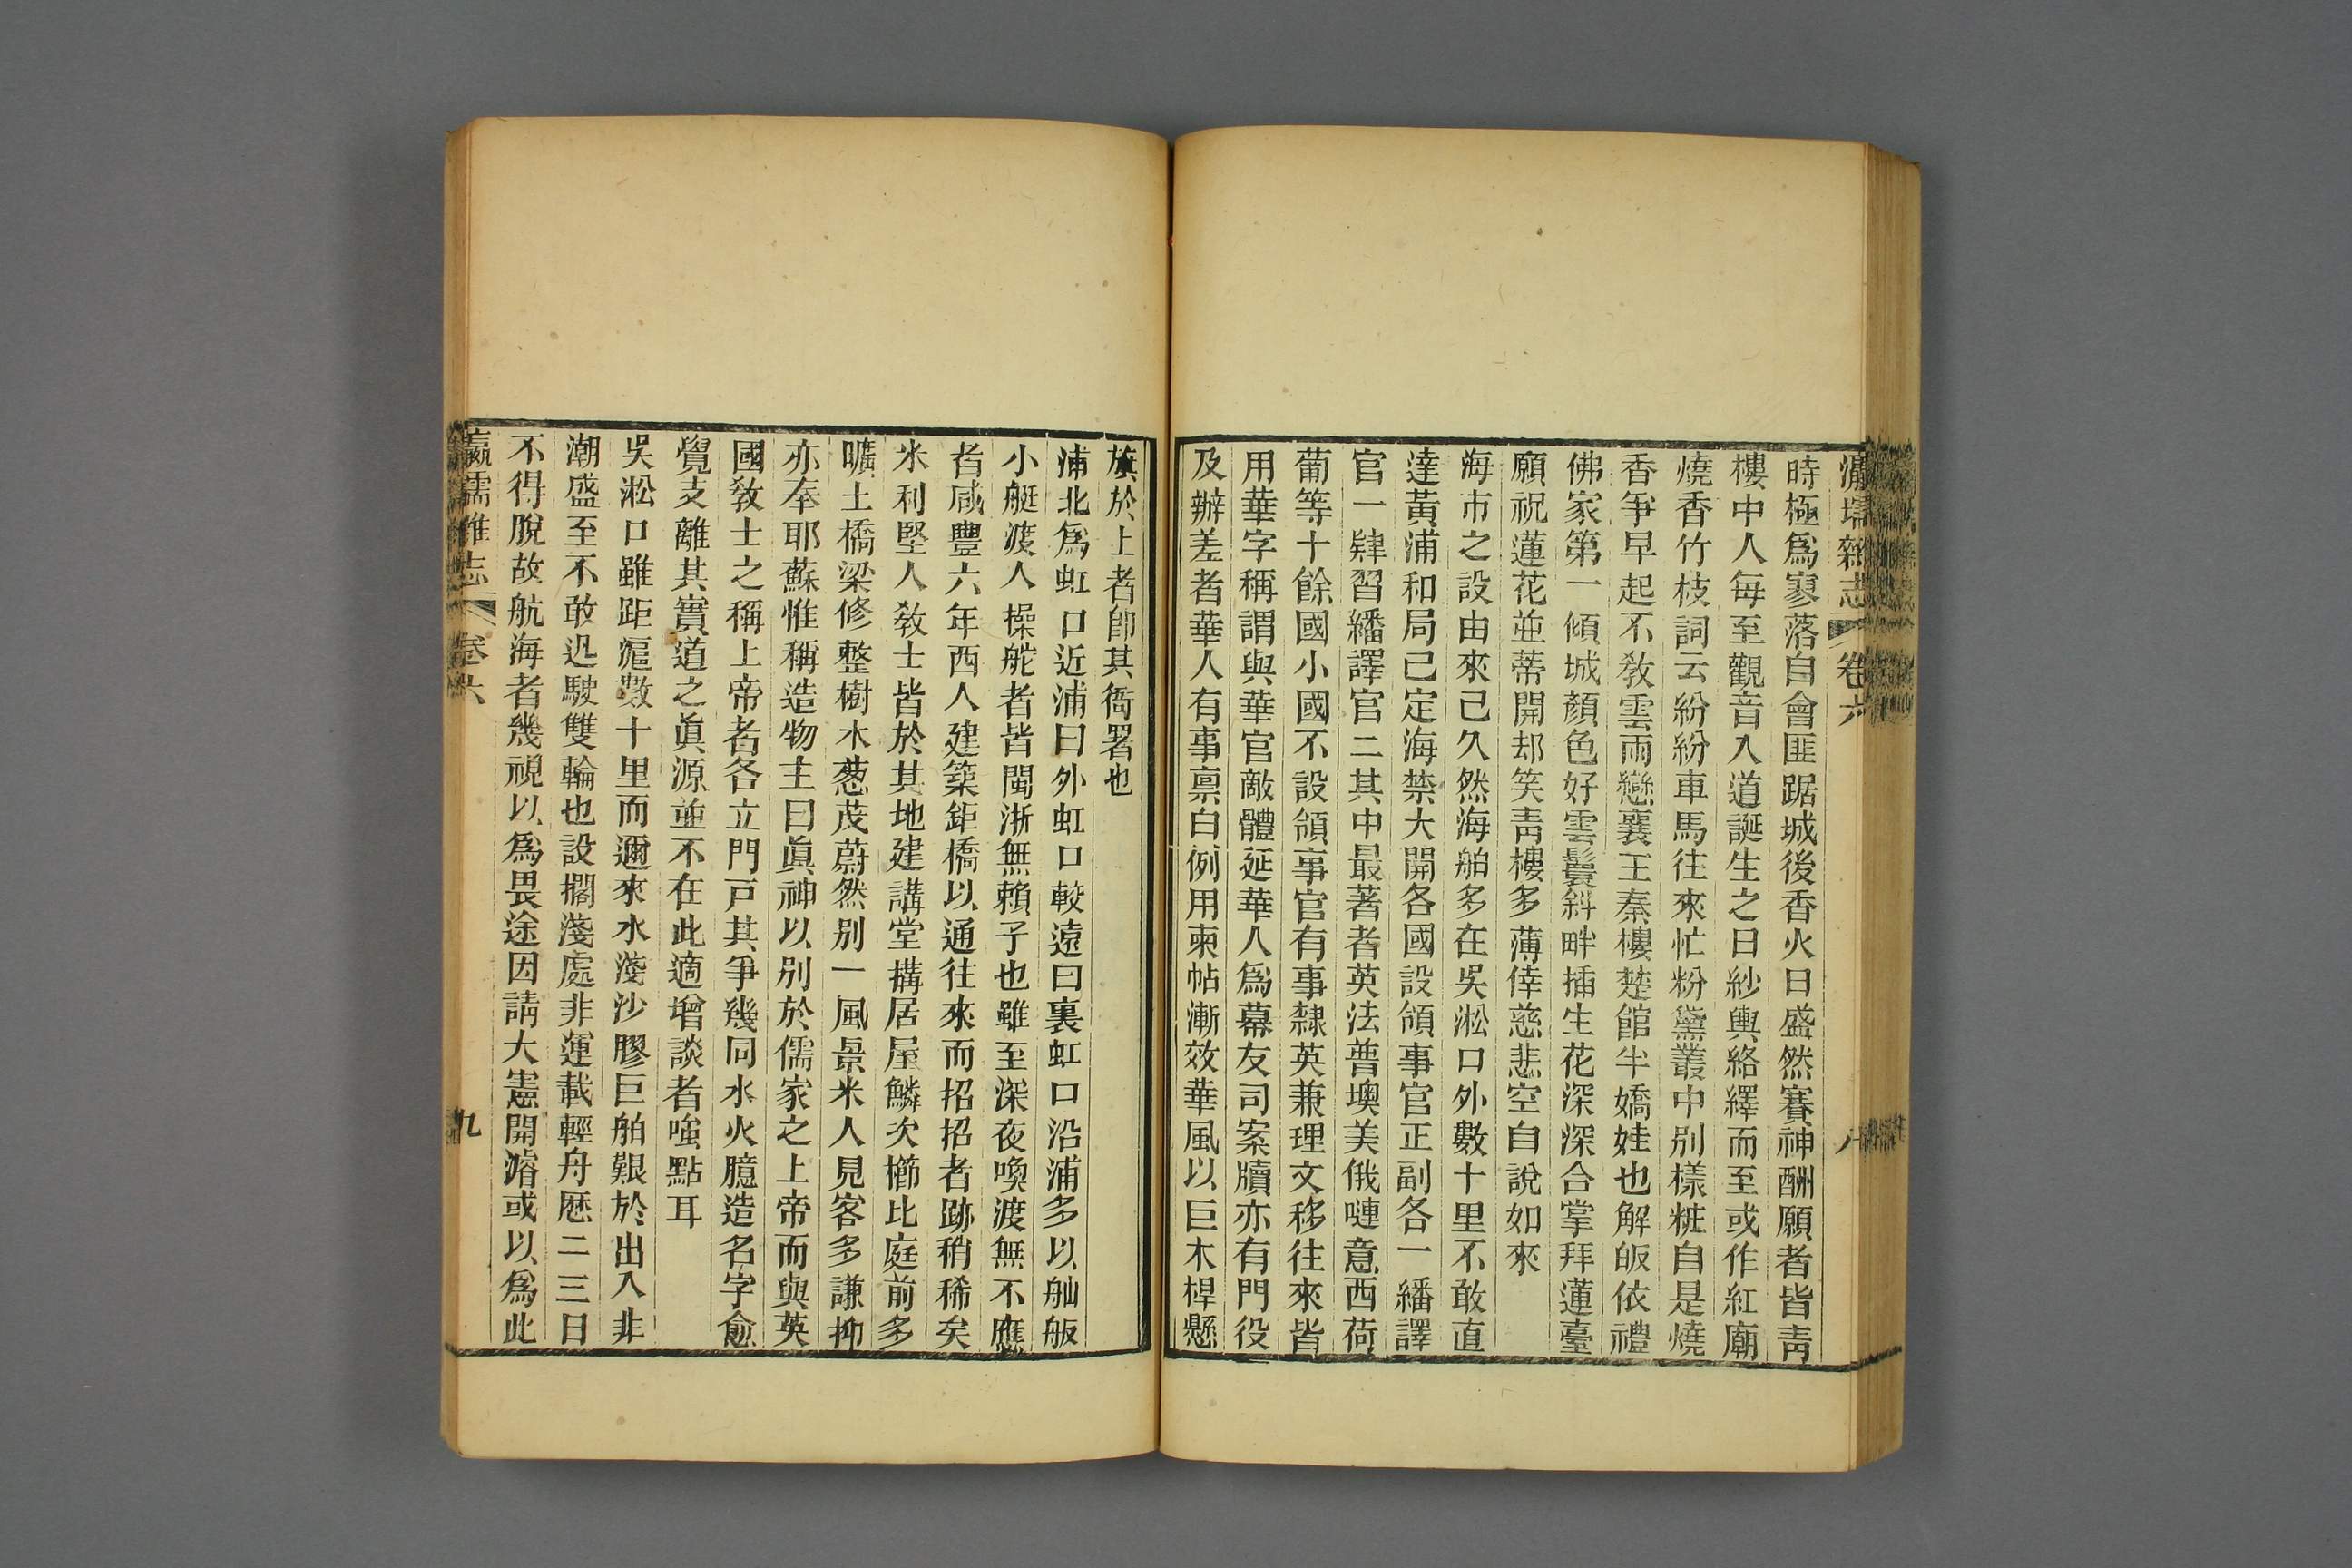 瀛壖雜志 卷六 八
時極爲寥落自會匪踞城後香火日盛然賽神酬願者皆靑
樓中人每至觀音入道誕生之日紗輿絡繹而至或作紅廟
燒香竹枝詞云紛紛車馬往來忙粉黛叢中别樣粧自是燒
香爭早起不敎雲雨戀襄王秦樓楚館半嬌娃也解皈依禮
佛家第一傾城顏色好雲鬟斜畔插生花深深合掌拜蓮臺
願祝蓮花並蒂開却笑靑樓多薄倖慈悲空自說如來
海市之設由來已久然海舶多在吳淞口外數十里不敢直
達黃浦和局已定海禁大開各國設領事官正副各一繙譯
官一肄習繙譯官二其中最著者英法普墺美俄嗹意西荷
葡等十餘國小國不設領事官有事隸英兼理文移往來皆
用華字稱謂與華官敵體延華人爲幕友司案牘亦有門役
及辦差者華人有事禀白例用柬帖漸效華風以巨木桿懸
旗於上者卽其衙署也
浦北爲虹口近浦曰外虹口較遠曰裏虹口沿浦多以舢舨
小艇渡人操舵者皆閩浙無賴子也雖至深夜喚渡無不應
者咸豐六年西人建築鉅橋以通往來而招招者跡稍稀矣
米利堅人敎士皆於其地建講堂搆居屋鱗次櫛比庭前多
曠土橋梁修整樹木葱茂蔚然别一風景米人見客多謙抑
亦奉耶蘇惟稱造物主曰眞神以别於儒家之上帝而與英
國敎士之稱上帝者各立門戸其爭幾同水火臆造名字愈
覺支離其實道之眞源並不在此適增談者嗤點耳
吳淞口雖距滬數十里而邇來水淺沙膠巨舶艱於出入非
潮盛至不敢迅駛雙輪也設擱淺處非運載輕舟歷二三日
不得脫故航海者幾視以爲畏途因請大憲開濬或以爲此
瀛壖雜志 卷六 九